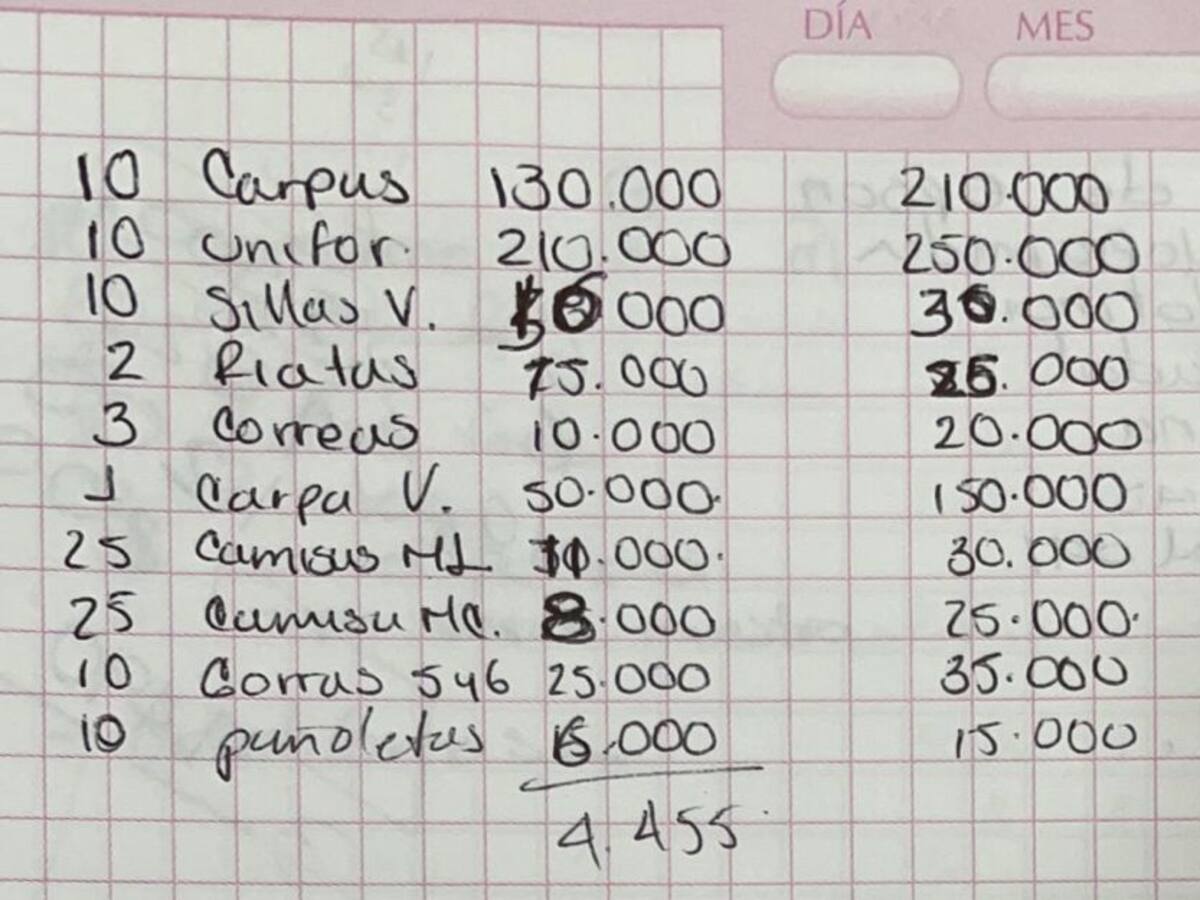 DÍA MES
10 Carpas 130.000 210.000
10 Unifor. 210.000 250.000
10 Sillas V. 000 30.000
2 Riatas 15.000 25.000
3 Correas 10.000 20.000
1 Carpa V. 50.000 150.000
25 Camisas ML 11.000 30.000
25 Camisa MC. 8.000 25.000
10 Gorras 546 25.000 35.000
10 pañoletas 6.000 15.000
4.455